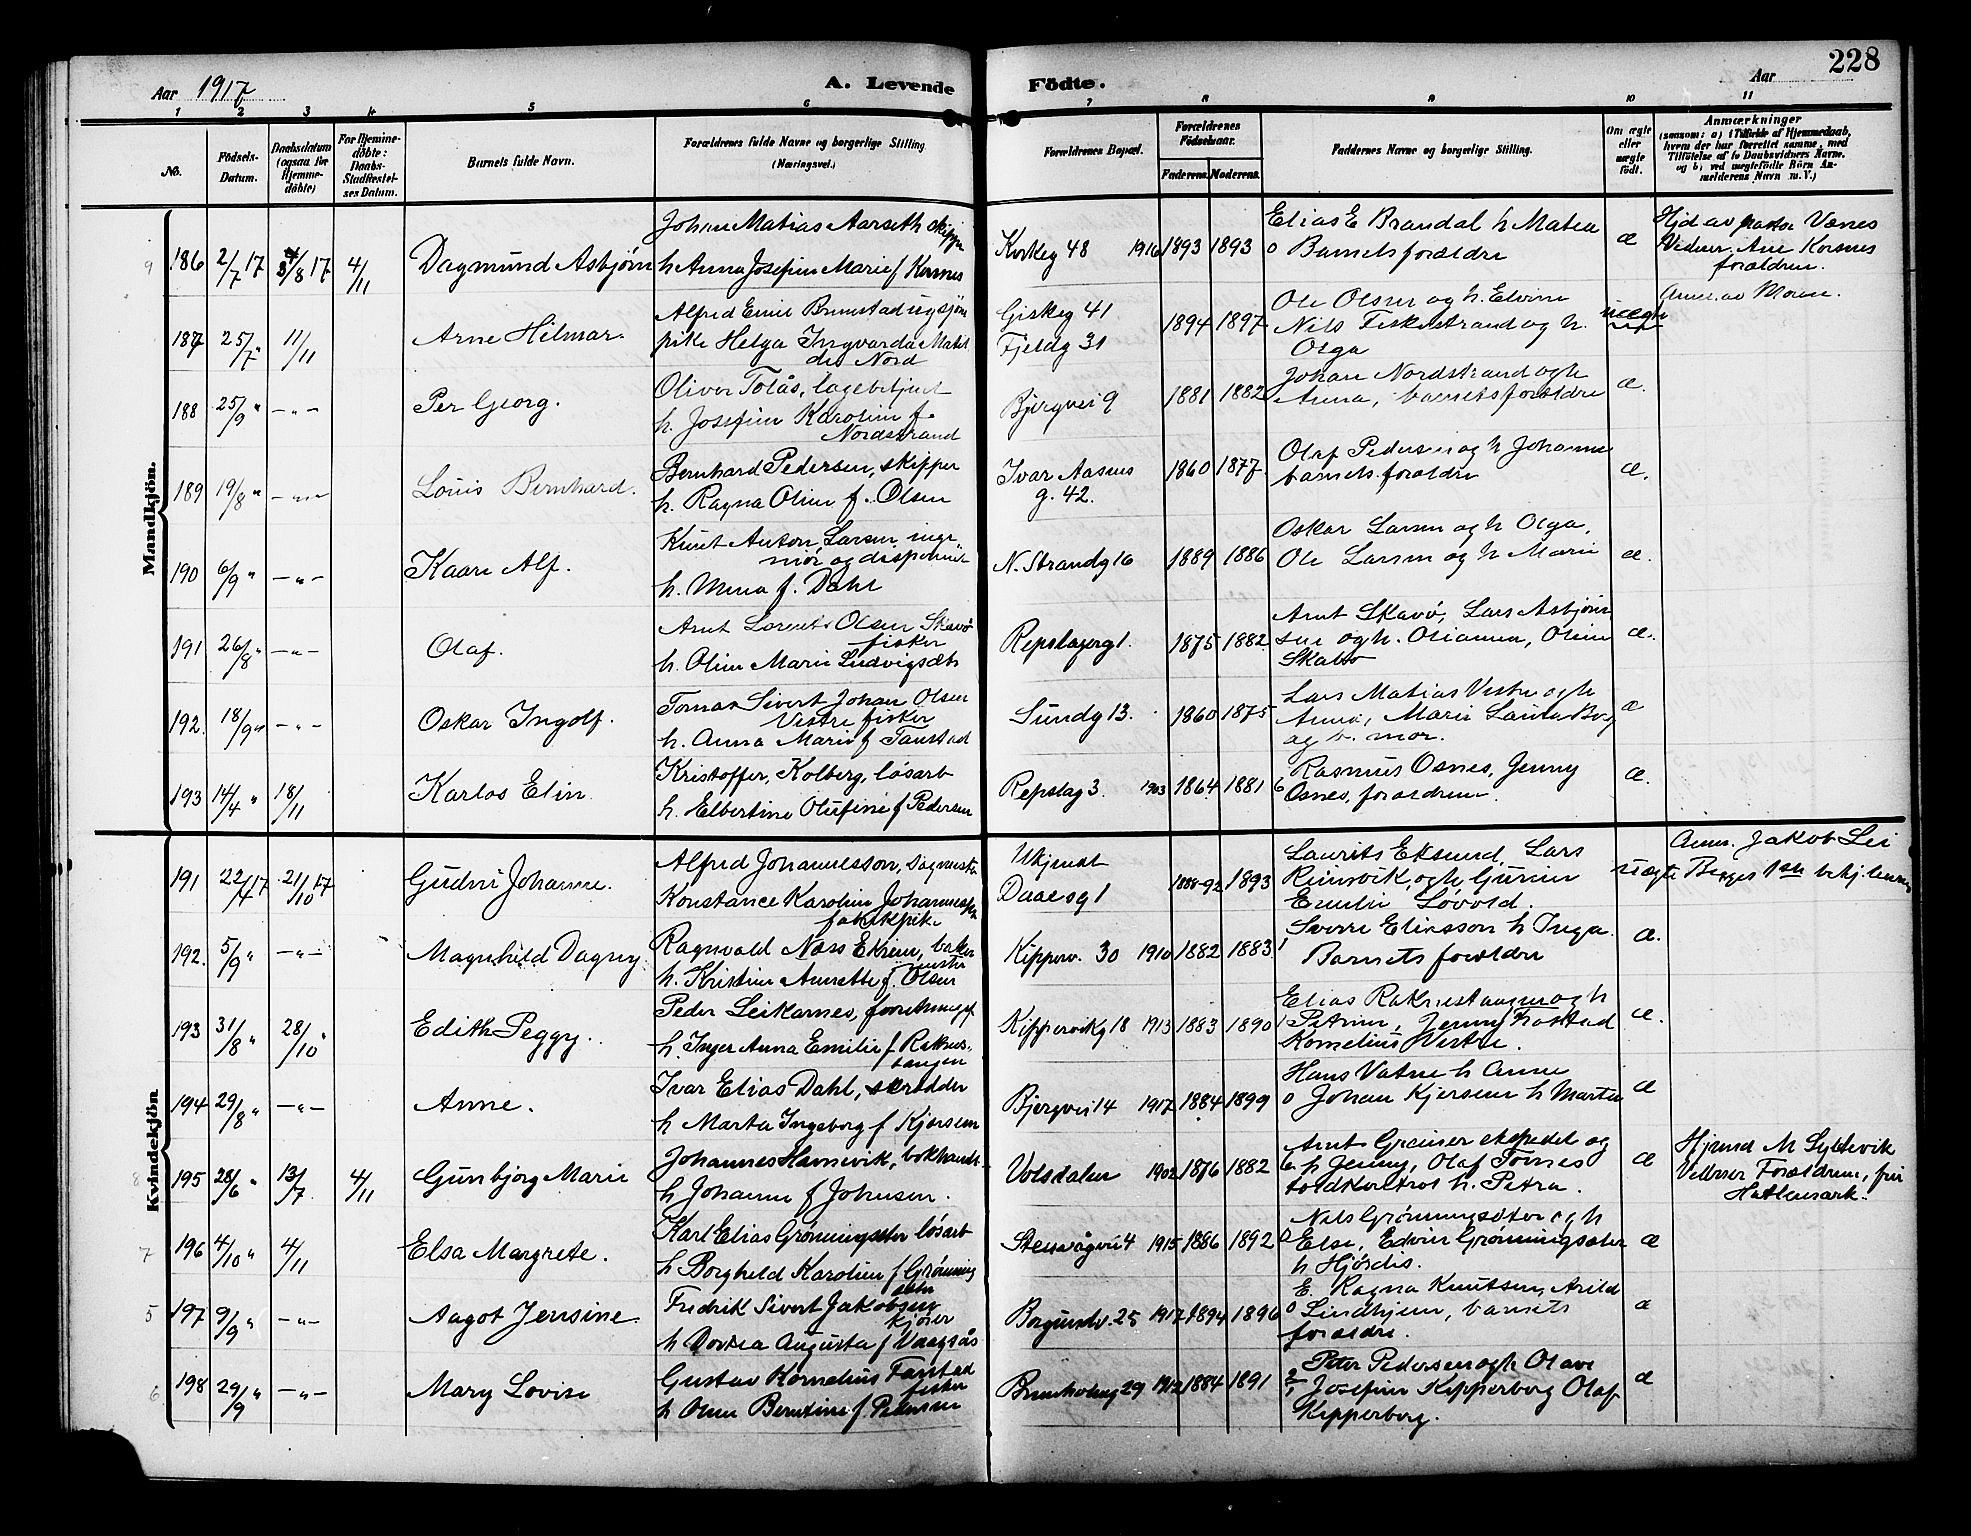 228
Aar 1917 A. Levende Födte. Aar
1 2 3 4 5 6 7 8 9 10 11
No.
Födsels-Datum.
Daabsdatum (ogsaa for Hjemme-döbte)
For Hjemme-döbte: Daabs-Stadfæstel-ses Datum.
Barnets fulde Navn.
Forældrenes fulde Navne og borgerlige Stilling
(Næringsvei.)
Forældrenes Bopæl.
Forældrenes Födselsaar.
Faderens. Moderens.
Faddernes Navne og borgerlige Stilling.
Om ægte eller uægte födt.
Anmærkninger
(saasom: a) i Tilfælde af Hjemmedaab,
hvem der har forrettet samme, med
Tilföielse af to Daabsvidners Navne,
og b) ved uegtefödte Börn An-
melderens Navn m. V.)
Mandkjön.
186 2/7 17 8/8 17 4/11 Dagmund Asbjørn
Johan Matias Aarseth skipper
h Anna Josefine Marie f Korsnes
Kirkeg 48 1916 1893 1893 0
Elias E Brandal h Matea
Barnets forældre
æ
Hjd av pastor Vænes
Vidner Ane Korsnes
forældrene.
187 25/7 " 11/11 Arne Hilmar.
Alfred Emil Brunstad ugsjøm
pike Helga Ingvarda Matil
de Nord
Giskeg 41
Fjeldg 31
1894 1897
Ole Olsen og h. Elvine
Nils Fiskerstrand og h.
Olga
uægte
Anm. av Moren.
188 25/9 " -"- Per Georg.
Oliver Tolås, lagebetjent
h. Josefine Karoline f.
Nordstrand
Bjergvei 9 1881 1882
Johan Nordstrand og h
Anna, barnets forældre
æ.
189 19/8 " -"- Louis Bernhard.
Bernhard Pedersen, skipper
h. Ragna Oline f. Olsen
Ivar Aasens
g. 42.
1860 1877
Olaf Pedersen og h Johanne
barnets forældre
æ.
190 6/9 " -"- Kaare Alf.
Knut Anton Larsen, inge
niør og disponent
h. Mina f. Dahl
N. Strandg 16 1889 1886
Oskar Larsen og h Olga,
Ole Larsen og h Marie
æ.
191 26/8 " -"- Olaf.
Arnt Lorents Olsen Skavø
fisker
h. Oline Marie Ludvigsdt
Repslagerg 1. 1875 1882
Arnt Skavø, Lars Asbjørn
sen og h. Olianna, Oline
Skavø
æ.
192. 18/9 " -"- Oskar Ingolf.
Tomas Sivert Johan Olsen
Vestre fisker
h. Anna Marie f Tanstad
Sundg 13. 1860 1875
Lars Matias Vestre og h
Anna, Marie Laura
og b. mor.
æ
193 14/4 " 18/11 Karlos Elin
Kristoffer, Kolberg, løsarb
h. Elbertine Olufine f Pedersen
Repslag 3. 1903 1864 1881 6
Rasmus Osnes, Jenny
Osnes, forældrene.
æ.
Kvindekjön
191 22/4 17 21/10 17 Gudni Johanne.
Alfred Johannesson,
Konstance Karoline Johannes
fabrikpike
Ukjendt
Daaesg 1
1888-92 1893
Laurits Eksund, Lars
Reinsvik, og h Guren
Emilie Løvold.
uægte
Anm. Jakob Lei
192. 5/9 " -"- Magnhild Dagny
Ragnvald Næss Ekrem, baker
mester
h. Kristine Annette f. Olsen
Kipperv. 30 1910 1882 1883 1
Sverre Eliasson h Inga.
Barnets forældre
æ.
193 31/8 " 28/10 " Edith Peggy.
Peder Leikarnes, forretningsf
h. Inger Anna Emilie f Raknes-
tangen
Kippervikg 18 1913 1883 1890 1
Elias Raknestangen og h
Petrine, Jenny
Kornelius Vestre.
æ.
194 29/8 " -"- Anne.
Ivar Elias Dahl, skrædder
h Marta Ingeborg f Kjersem
Bjergvei 14 1917 1884 1899 0
Hans Vatne h Anne
Johan Kjersem h Marte
æ
8 195 28/6 " 13/7 4/11 Gunbjørg Marie
Johannes Hamnevik, bokhandl.
h Johanne f Johnsen.
Volsdalen 1902 1876 1882 6
Arnt Greiner ekspedit og
h Jenny, Olaf Tomes
toldkontrol h. Petra.
æ
Hjemd M Gyldevik
Vidner Forældrene, fru
Hatlemark.
7 196 4/10 " 4/11 Elsa Margrete.
Karl Elias Grønningsæter løsarb
h Borghild Karoline f Grønning
sæter
Stensvågvei 4 1915 1886 1892 0
Nels Grønningsæter og h
Else, Edvin Grønningsæter
h Hjørdis.
æ
5 197 9/9 " -"- Aagot Jensine
Fredrik Sivert Jakobsen
kjører
h Dortea Augusta f Vaagsås
Borgundv. 25 1917 1894 1896 0
E. Ragna Knutsen, Arild
Lindhjem, barnets
forældre.
æ
6 198 29/9 " -"- Mary Lovise
Gustav Kornelius Fanstad
fisker
h Oline Berntine f Pedersen
Brunholmg 29 1912 1884 1891 2/1
Peter Pedersen og h Olave
Josefine Kipperberg Olaf
Kipperberg.
æ